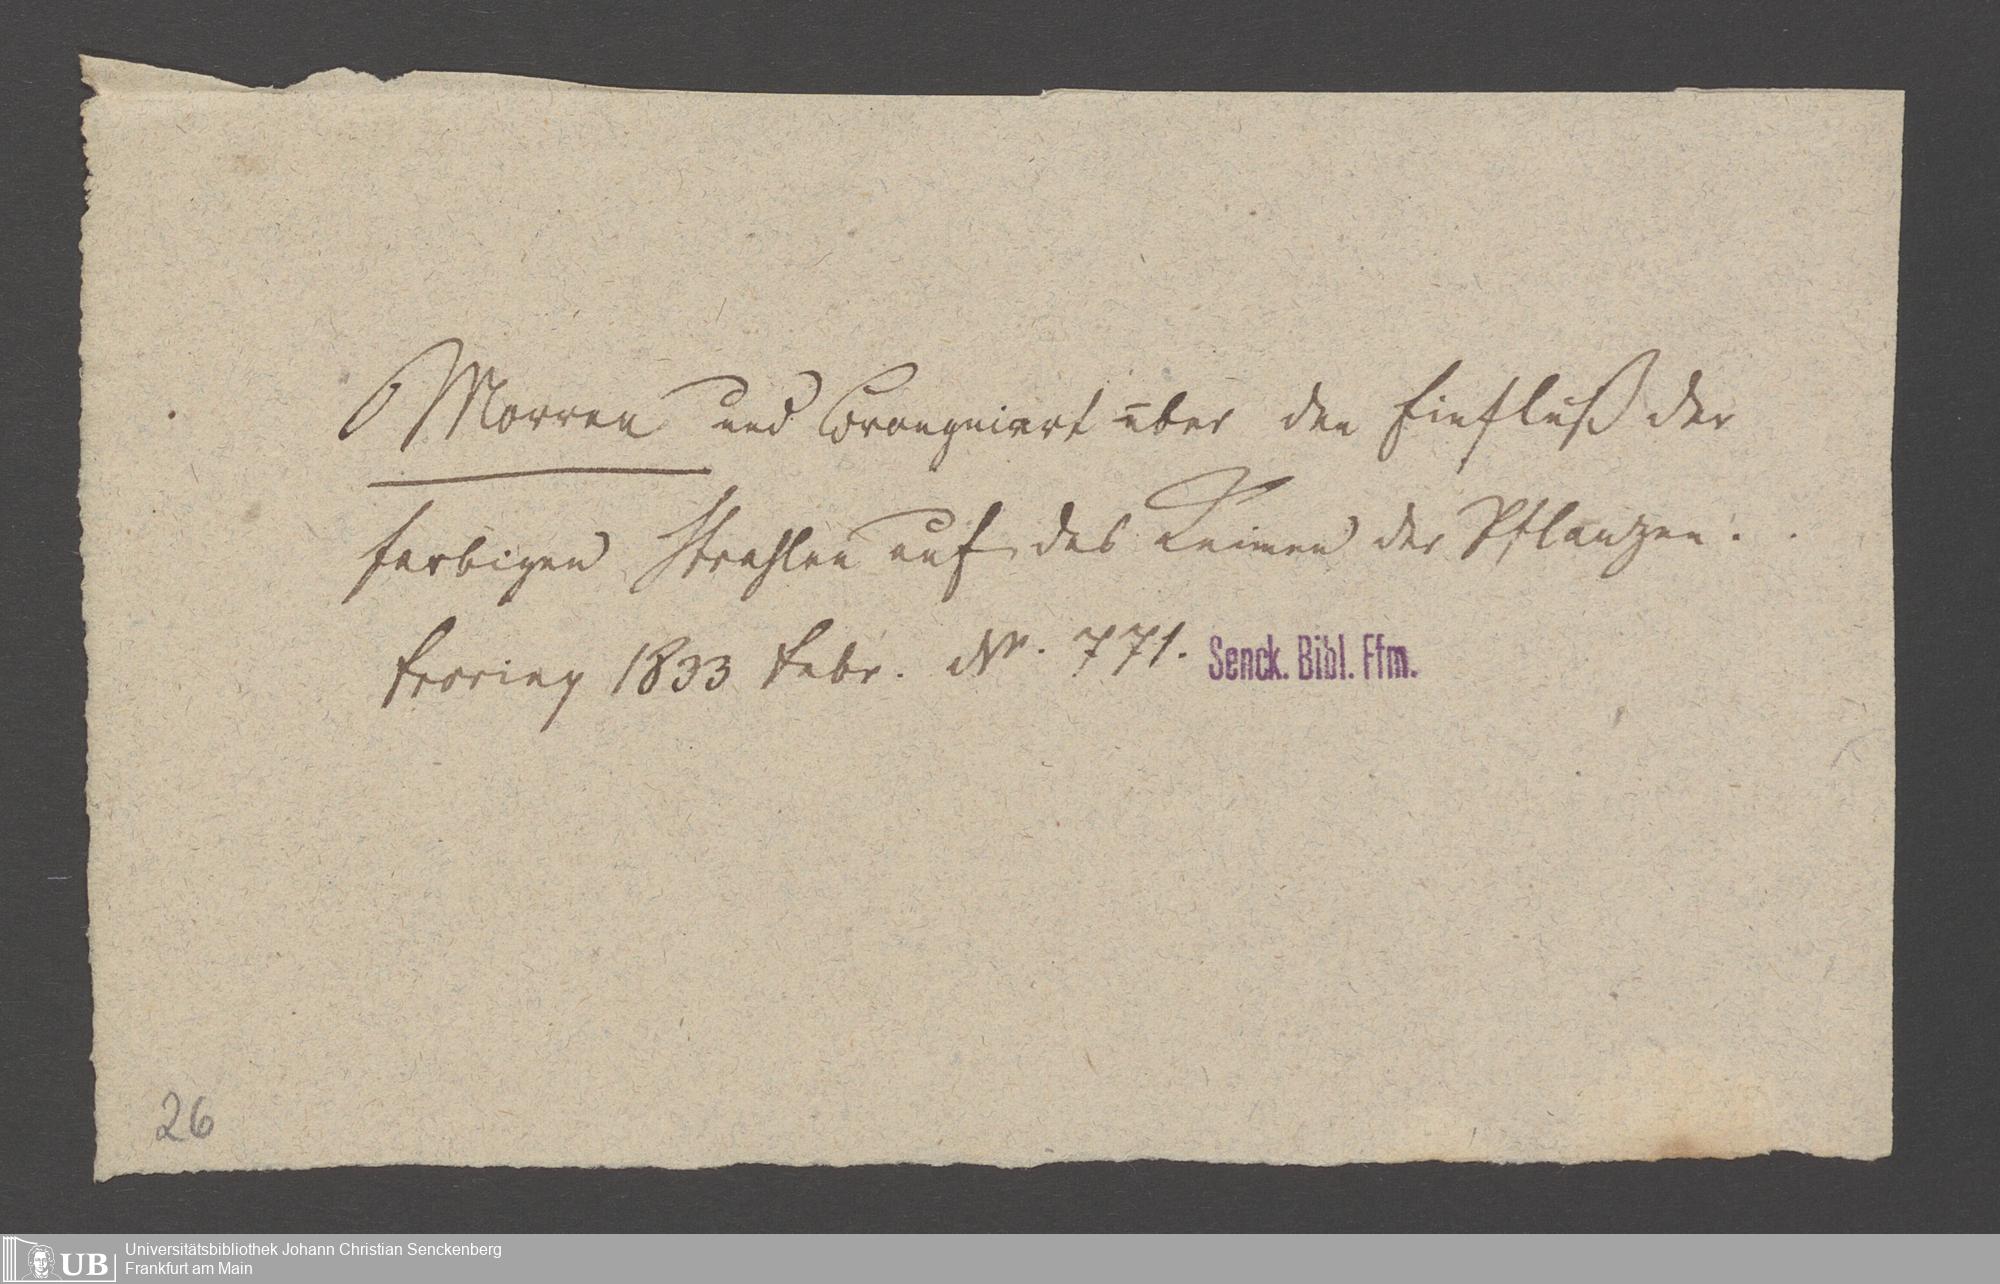 Morren und Brongniart über den Einfluß der
farbigen Strahlen auf das Keimen der Pflanzen.
Froriep 1833 Febr. Nr. 771.
Senck. Bibl. Ffm.
26
UB
Universitätsbibliothek Johann Christian Senckenberg
Frankfurt am Main